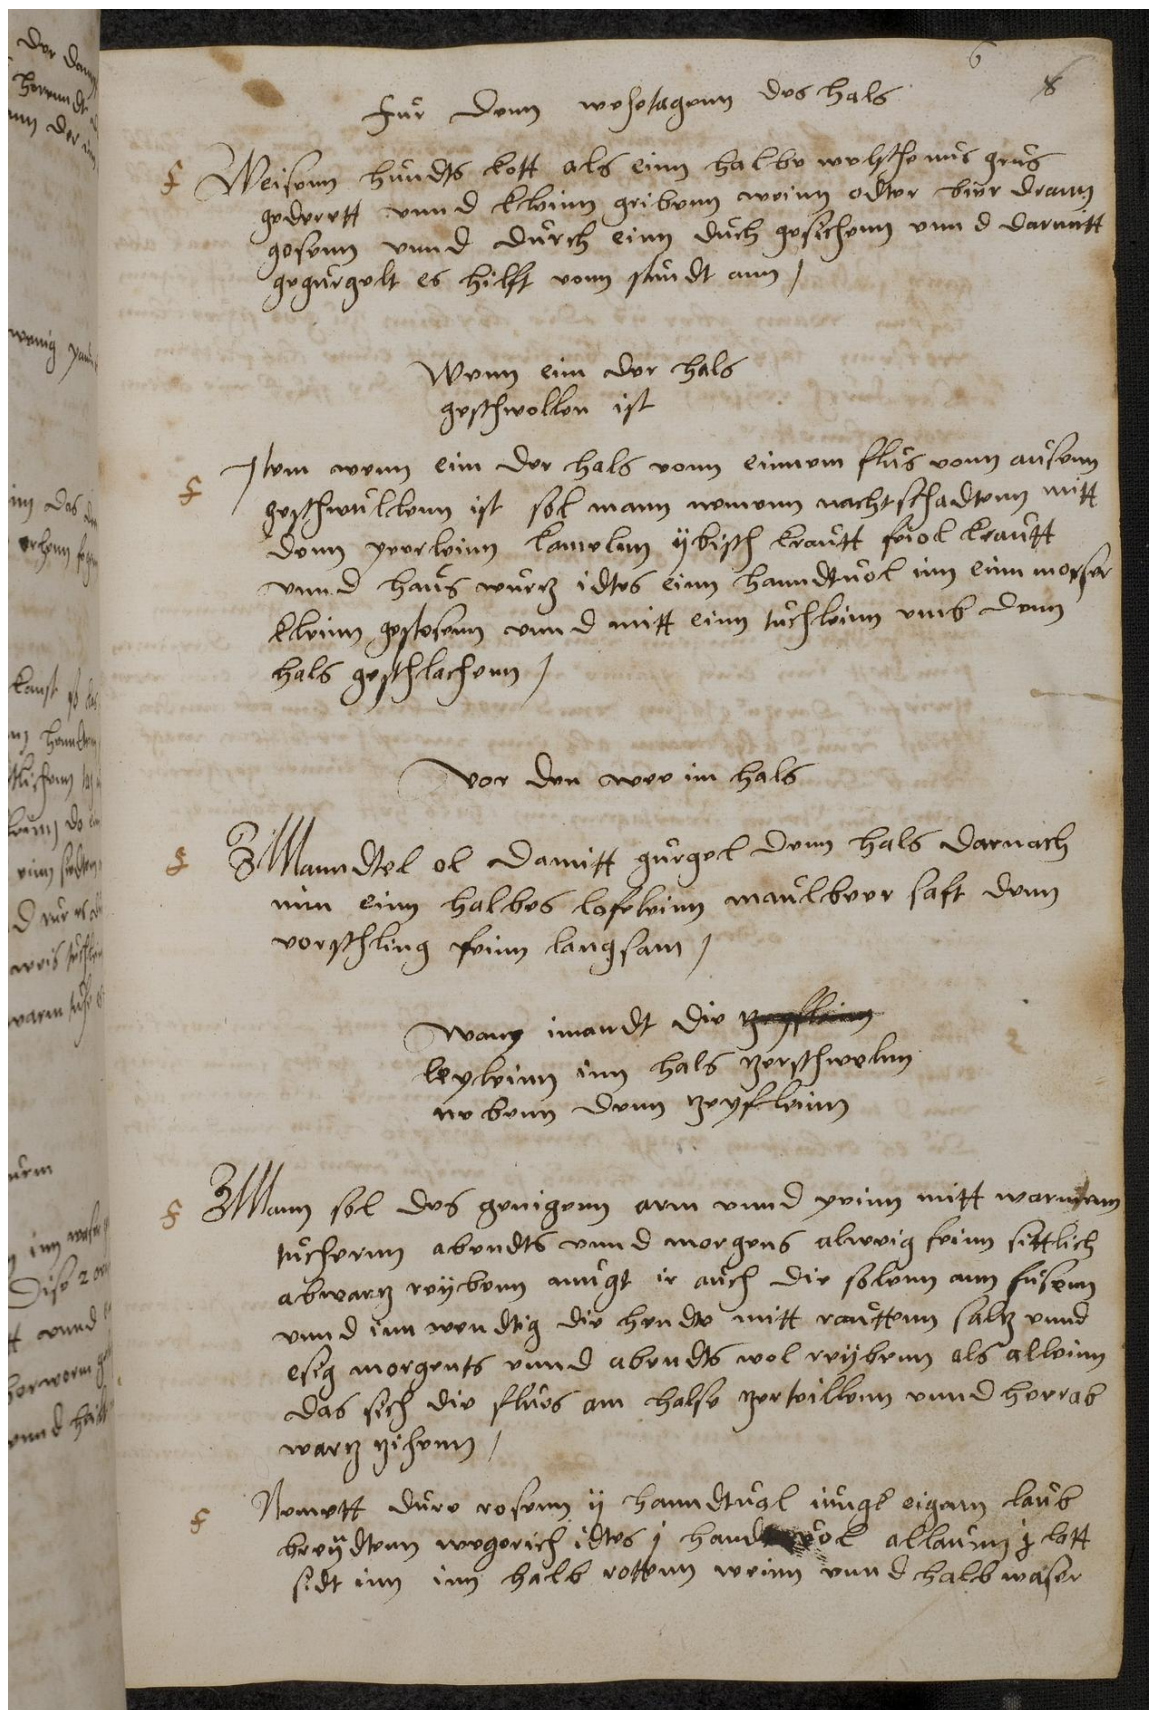 6
8
Für denn wehetagenn des hals
Weisenn hundts kott als einn halbe welsche nus grus
gederett vnnd kleinn geribenn weinn odter bier drann
gosenn vnnd durch einn duch gesichenn vnnd darmitt
gegurgelt es hilft vonn stundt ann /
Wenn eim der hals
geschwollen ist
Item wenn eim der hals vonn einnem flus vonn ausenn
geschwullenn ist sol mann nemenn nachtschadtenn mitt
denn perleinn kamelnn ÿbisch krautt feiol krautt
vnnd haus wurtz idtes einn hanndtuol inn einn morser
kleinn gestosenn vnnd mitt einn tuchleinn vmb denn
hals geschlachenn /
vor den wee im hals
Manndtel ol damitt gurgel denn hals darnach
nim einn halbes lofeleinn maulbeer saft denn
vorschling feinn langsam /
Wann imandt die
leyleinn inn hals zerschwelnn
nebenn denn zeyfleinn
Mann sol des genigenn arm vnnd peinn mitt warmenn
tuchernn abendts vnnd morgens alweig feinn sittlich
abwartz reÿbenn mugt ir auch die solenn ann fusenn
vnnd inn wendtig die hendte mitt rauttenn saltz vnnd
esig morgents vnnd abendts wol reÿbenn als alleinn
das sich die flues am halse zerteillenn vnnd herrab
wartz zihenn /
Nemett dure rosenn ij hanndtual iunge eigenn laub
breÿdtenn wegerich idtes j hand uol allaunn j lott
sidt inn inn halb rottenn weinn vnnd halb waser